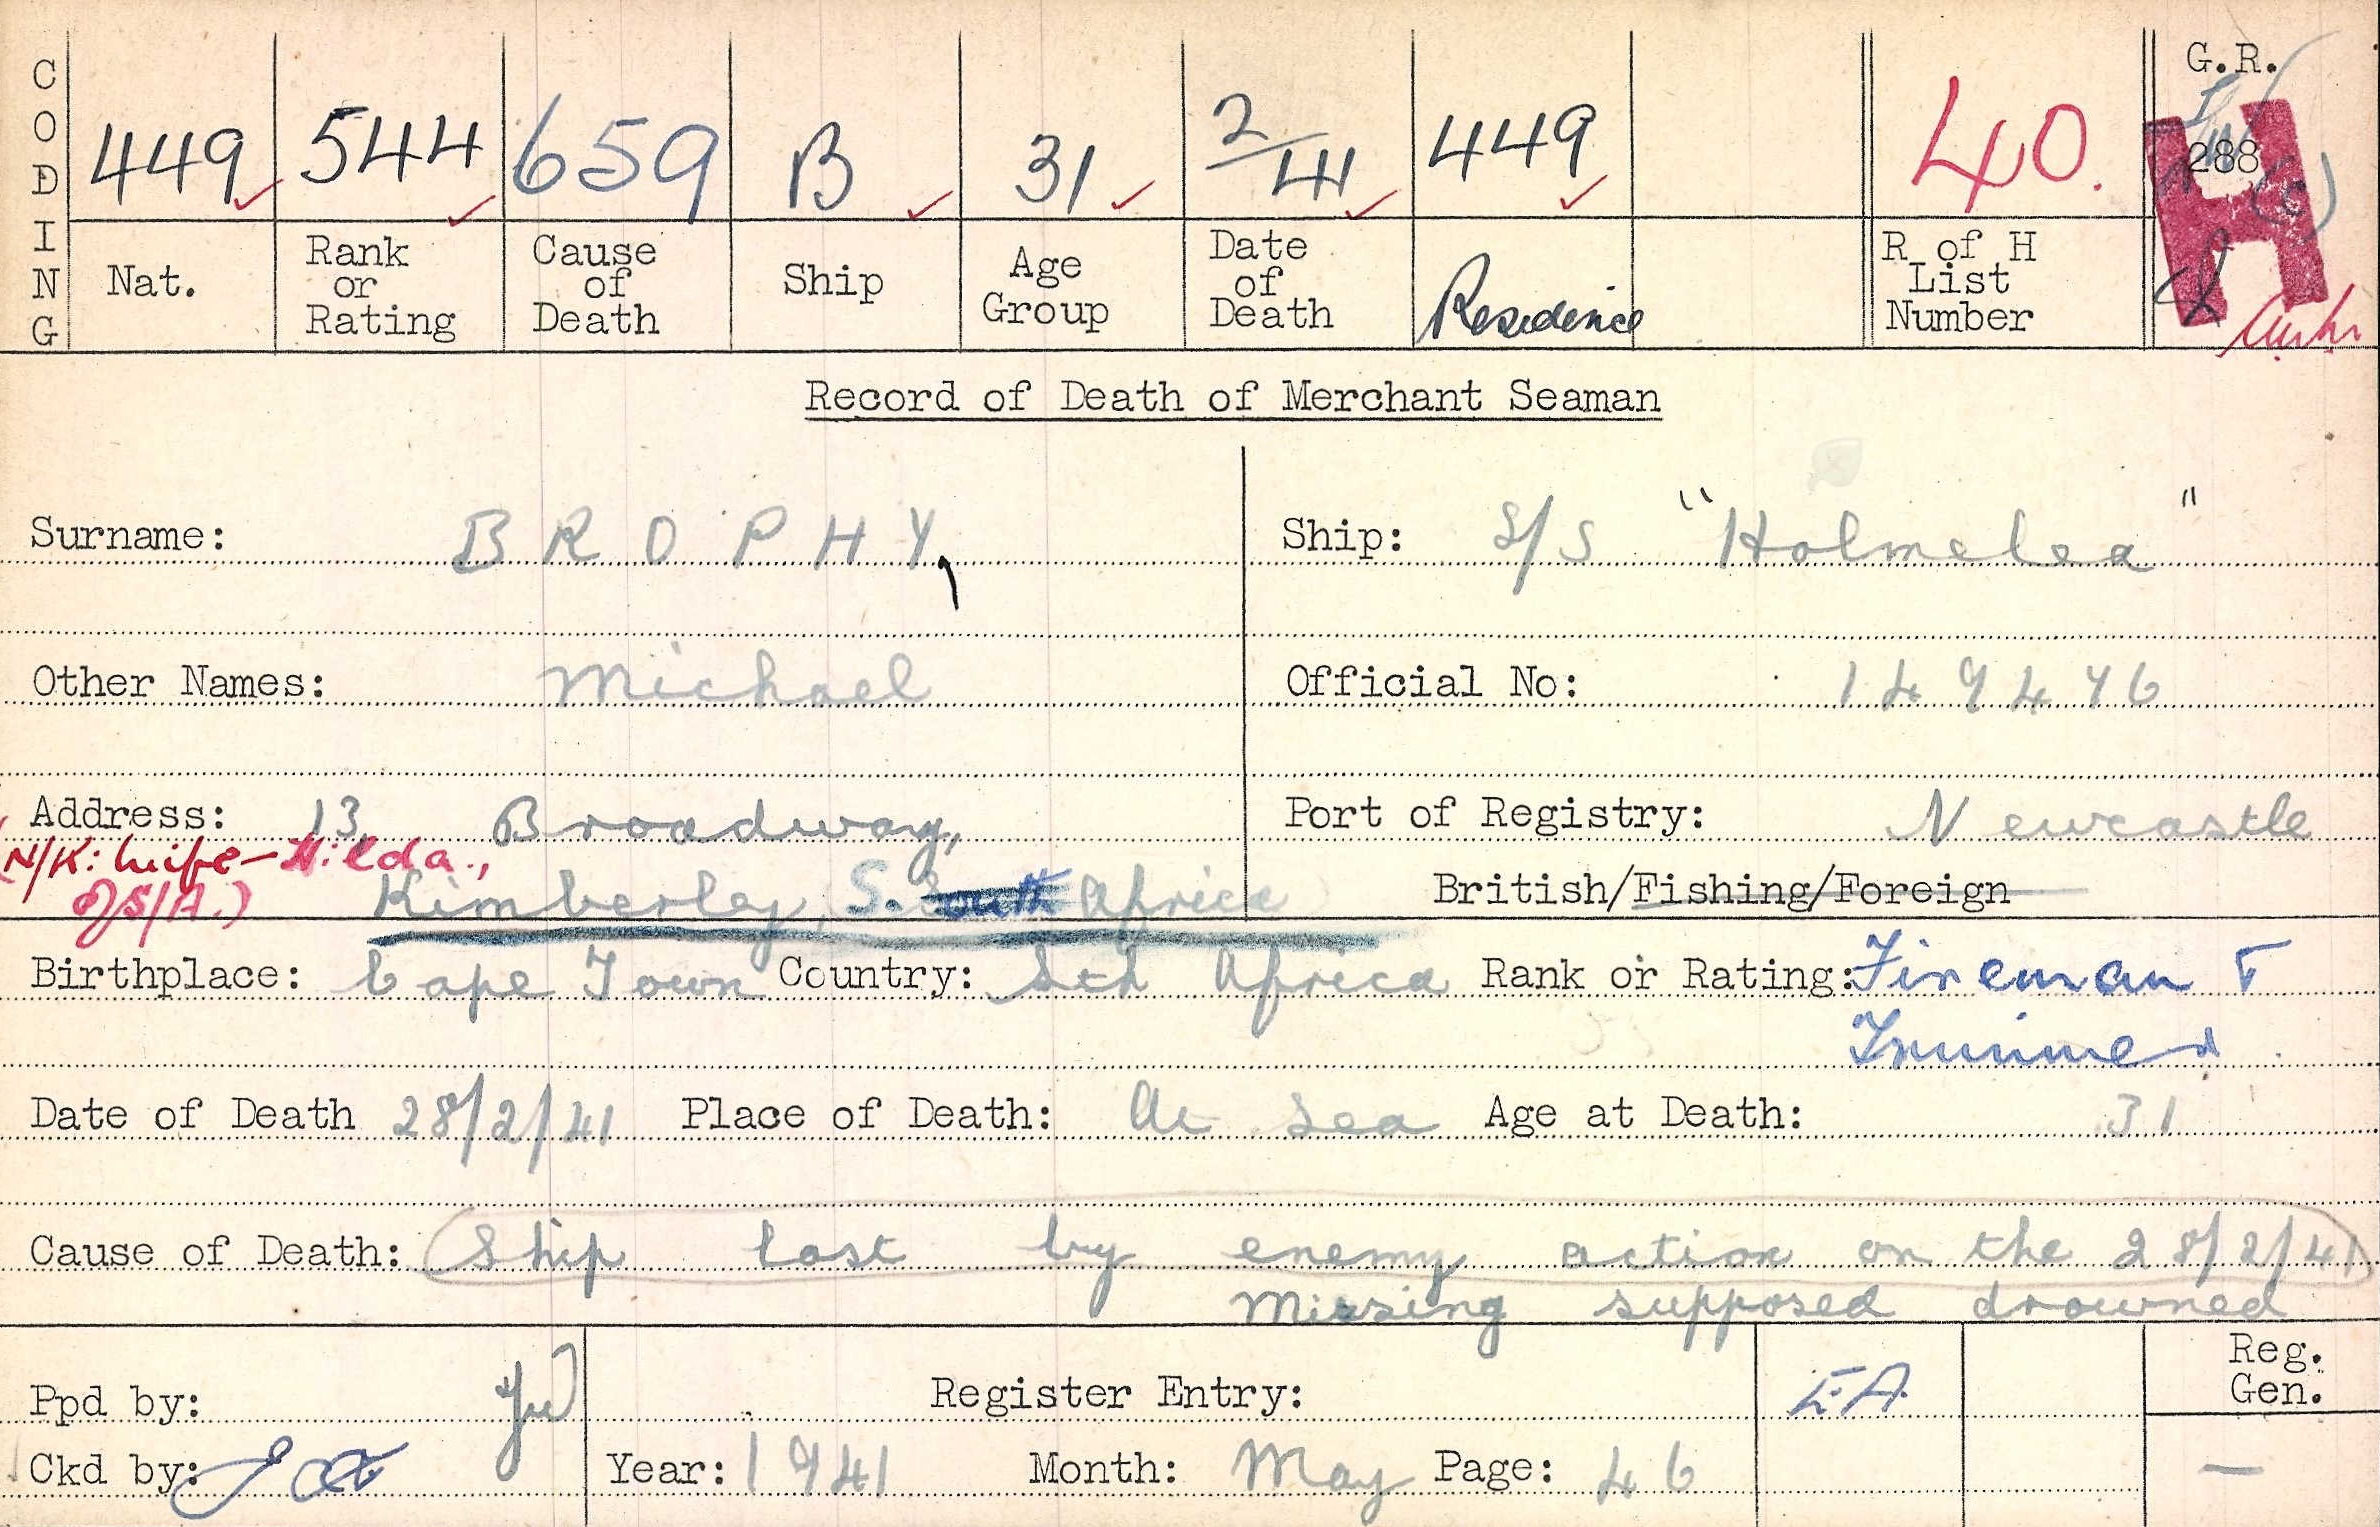 CODING
449 544 659 B 31 2/41 449 40. G.R. 288 (c) H
Nat. Rank or Rating Cause of Death Ship Age Group Date of Death Residence R of H List Number
Record of Death of Merchant Seaman
Surname: BROPHY, Ship: S/S "Holmelea"
Other Names: Michael Official No: 149476
Address: 13, Broadway, Port of Registry: Newcastle
(N/K: wife - Hilda.,
Kimberley, S. South Africa British/Fishing/Foreign
Birthplace: Cape Town Country: Sth Africa Rank or Rating: Fireman &
Trimmer
Date of Death 28/2/41 Place of Death: At sea Age at Death: 31
Cause of Death: (Ship lost by enemy action on the 28/2/41)
Missing supposed drowned
Ppd by: Register Entry: EA Reg. Gen.
Ckd by: Year: 1941 Month: May Page: 46 —